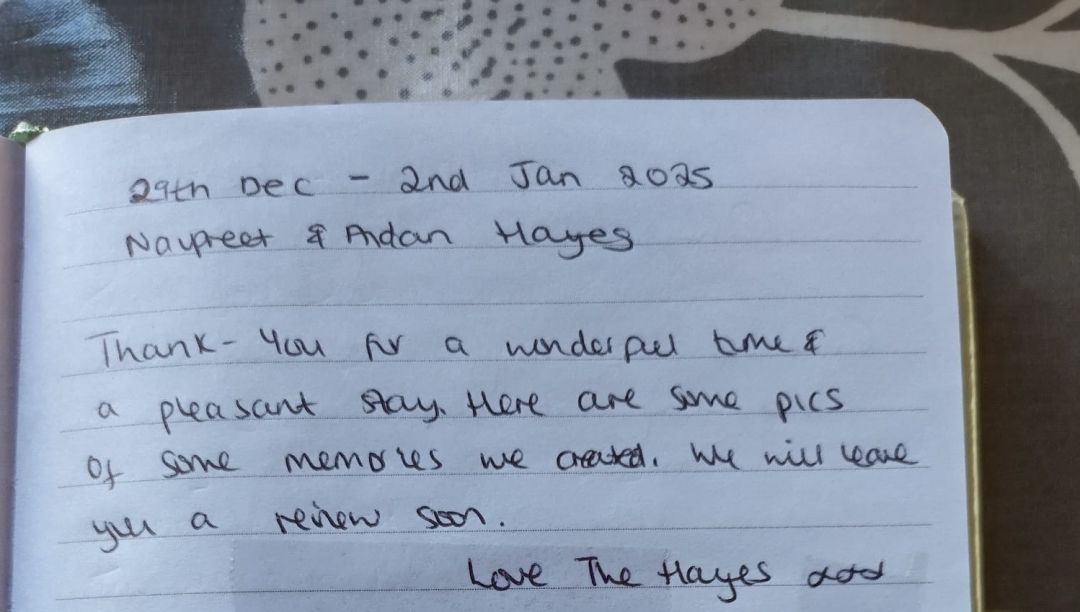 29th Dec - 2nd Jan 2025
Navpreet & Aidan Hayes
Thank-You for a wonderful time &
a pleasant stay. Here are some pics
of some memories we created. We will leave
you a review soon.
Love The Hayes xxx